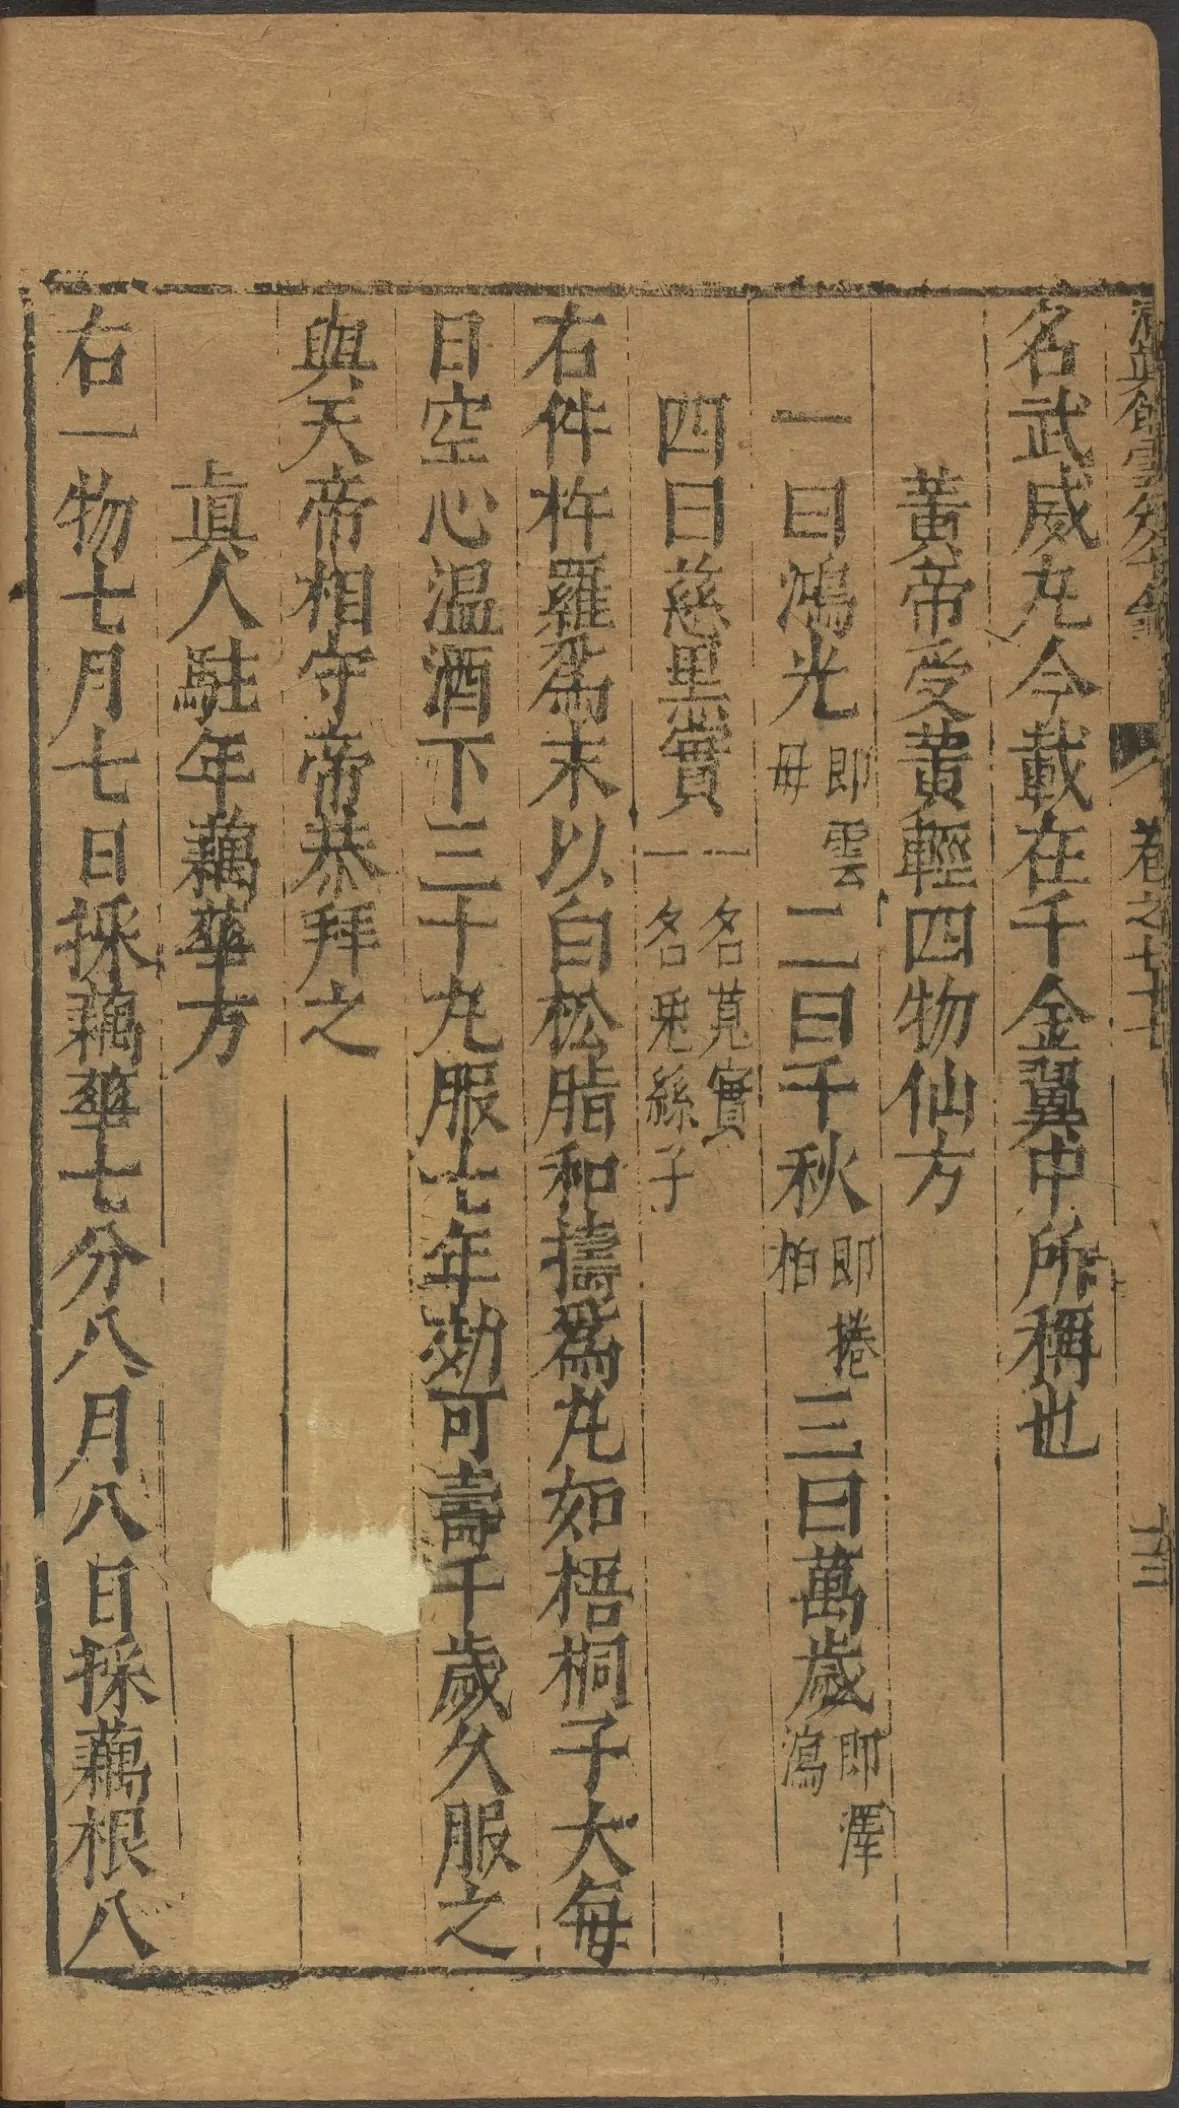 卷之七十七
十三
名武威丸今載在千金翼中所稱也
黃帝受黃輕四物仙方
一曰鴻光即雲母二曰千秋即捲柏三曰萬歲即澤瀉
四曰慈墨實一名莬實一名兎絲子
右件杵羅爲末以白松脂和擣爲丸如梧桐子大每
日空心温酒下三十丸服七年効可壽千歲久服之
與天帝相守帝恭拜之
眞人駐年藕華方
右一物七月七日採藕華七分八月八日採藕根八